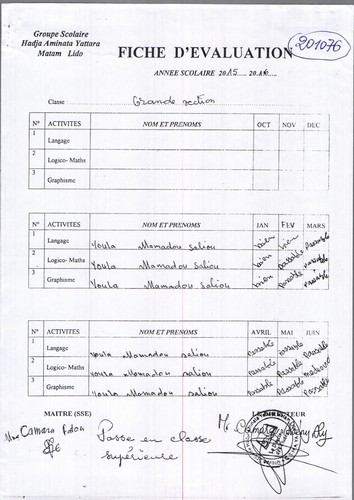 Groupe Scolaire
Hadja Aminata Yattara
Matam Lido
FICHE D'EVALUATION
201076
ANNEE SCOLAIRE 2015.... 2016....
Classe : Grande section
N° ACTIVITES NOM ET PRENOMS OCT NOV DEC
1 Langage
2 Logico- Maths
3 Graphisme
N° ACTIVITES NOM ET PRENOMS JAN FEV MARS
1 Langage Youla Mamadou Saliou bien bien passable
2 Logico- Maths Youla Mamadou Saliou bien passable passable
3 Graphisme Youla Mamadou Saliou bien passable passable
N° ACTIVITES NOM ET PRENOMS AVRIL MAI JUIN
1 Langage Youla Mamadou Saliou passable passable passable
2 Logico- Maths Youla Mamadou Saliou passable passable
3 Graphisme Youla Mamadou Saliou passable passable passable
MAITRE (SSE)
Mme Camara Fatou
Passe en classe
supérieure